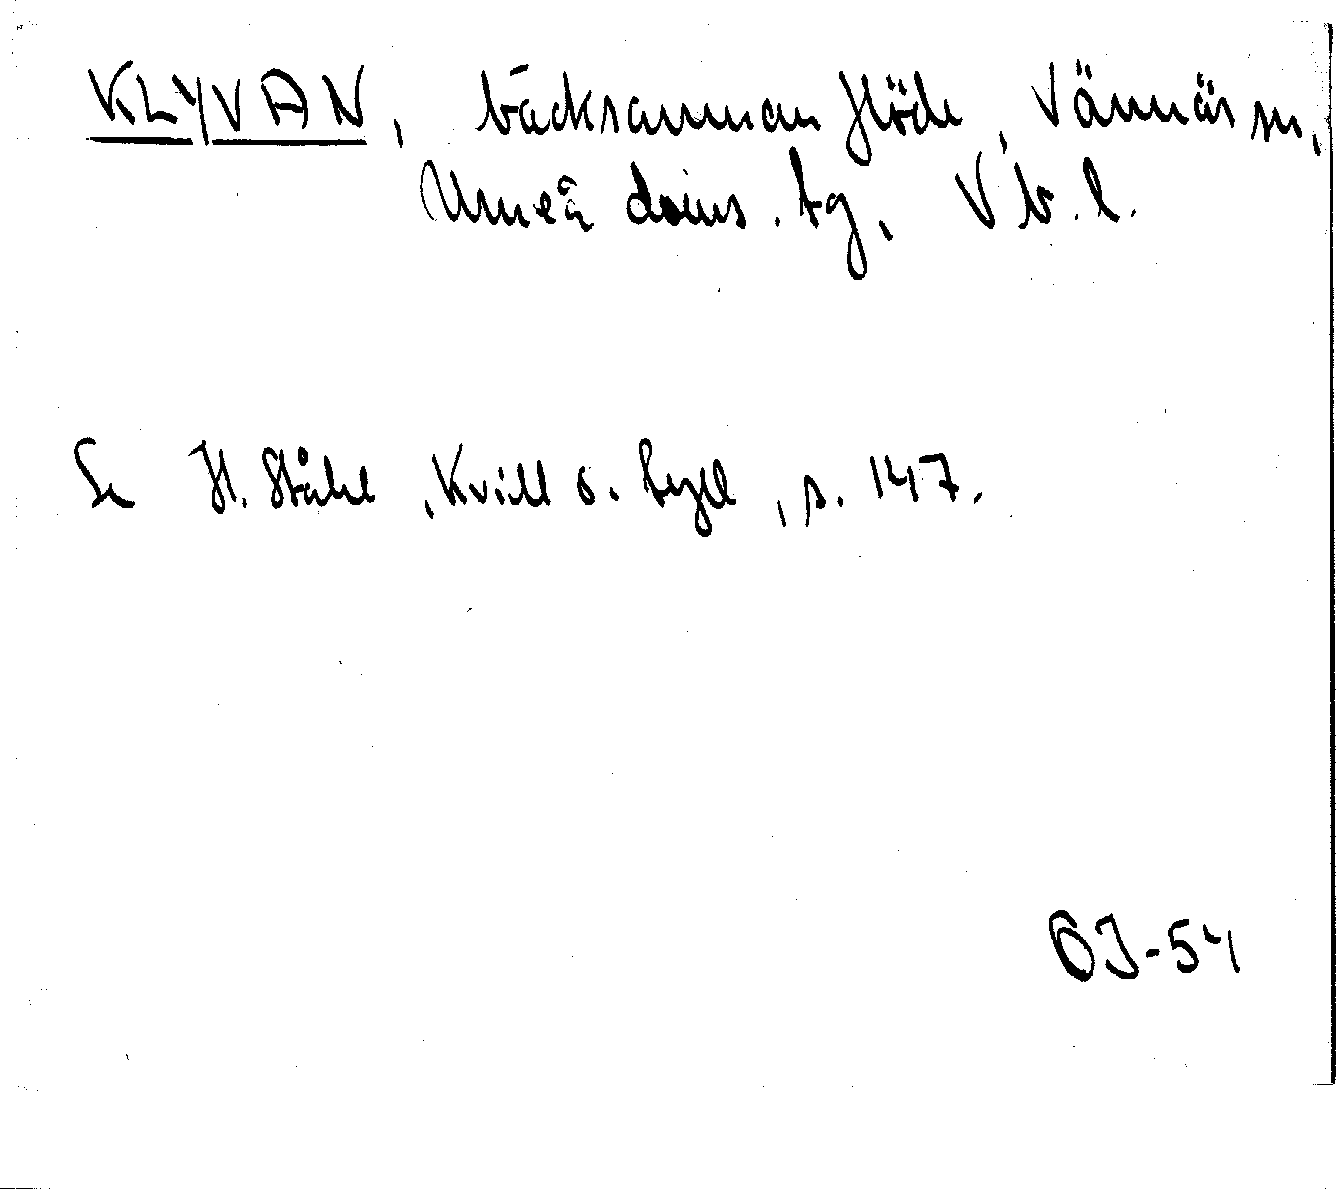 KLYVAN, bäcksamman flöde, Vännäs sn,
Umeå doms. tg, Vb. l.
Se H. Ståhl, Kvill o. tyll, s. 147.
OJ-54